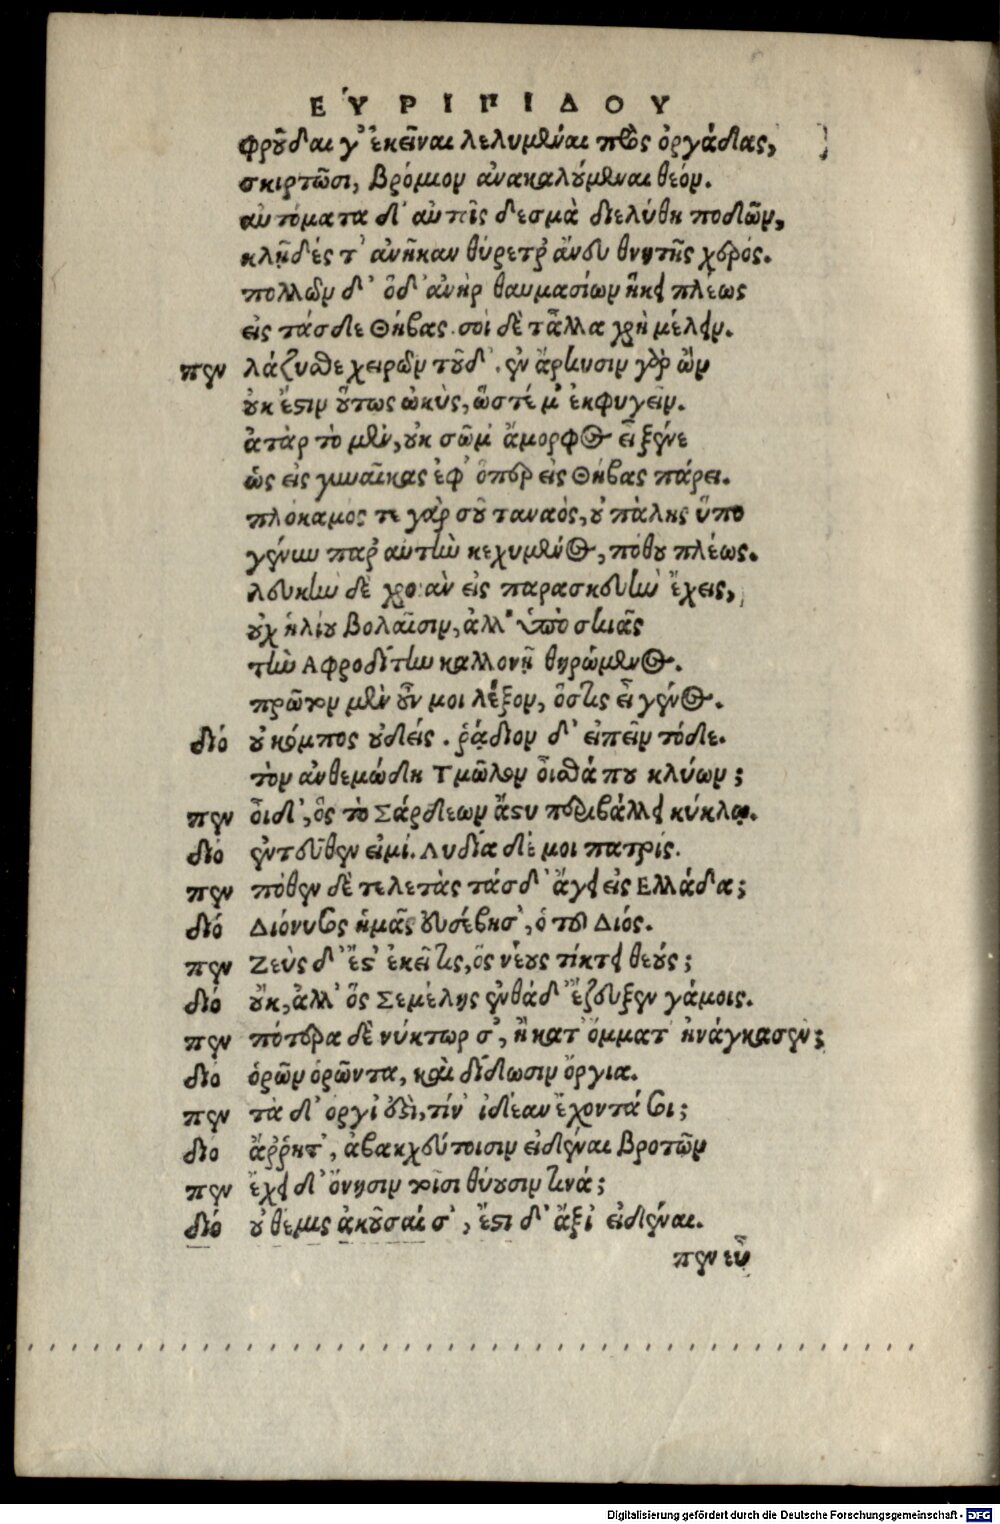 ΕΥ̓ΡΙΠΙΔΟΥ
φροῦδαι γ' ἐκεῖναι λελυμέναι πρὸς ὀργάδας,
σκιρτῶσι, βρόμιον ἀνακαλούμεναι θεόν.
αὐτόματα δ' αὐταῖς δεσμὰ διελύθη ποδῶν,
κλῇδές τ' ἀνῆκαν θύρετρ' ἄνευ θνητῆς χερός.
πολλῶν δ' ὅδ' ἀνὴρ θαυμασίων ἥκει πλέως
εἰς τάσδε Θήβας. σοὶ δὲ τἆλλα χρὴ μέλειν.
πεν λάζυσθε χειρῶν τοῦδ'. ἐν ἄρκυσιν γὰρ ὢν
οὐκ ἔστιν οὕτως ὠκὺς, ὥστέ μ' ἐκφυγεῖν.
ἀτὰρ τὸ μὲν, οὐκ σῶμ' ἄμορφος εἶ ξένε
ὡς εἰς γυναῖκας ἐφ' ὅπερ εἰς Θήβας πάρει.
πλόκαμός τε γὰρ σοῦ ταναὸς, οὐ πάλης ὕπο
γένυν παρ' αὐτὴν κεχυμένος, πόθου πλέως.
λευκὴν δὲ χροιὰν εἰς παρασκευὴν ἔχεις,
οὐχ ἡλίου βολαῖσιν, ἀλλ' ὑπὸ σκιᾶς
τὴν Αφροδίτην καλλονῇ θηρώμενος.
πρῶτον μὲν οὖν μοι λέξον, ὅστις εἶ γένος.
διό οὐ κόμπος οὐδείς. ῥᾴδιον δ' εἰπεῖν τόδε.
τὸν ἀνθεμώδη Τμῶλον οἶσθά που κλύων;
πεν οἶδ', ὃς τὸ Σάρδεων ἄστυ περιβάλλει κύκλῳ.
διό ἐντεῦθεν εἰμί. Λυδία δέ μοι πατρίς.
πεν πόθεν δὲ τελετὰς τάσδ' ἄγεις εἰς Ελλάδα;
διό Διόνυσος ἡμᾶς εὐσέβησ', ὁ τοῦ Διός.
πεν Ζεὺς δ' ἔστ' ἐκεῖ τις, ὃς νέους τίκτει θεούς;
διό οὔκ, ἀλλ' ὃς Σεμέλης ἐνθάδ' ἔζευξεν γάμοις.
πεν πότερα δὲ νύκτωρ σ', ἢ κατ' ὄμματ' ἠνάγκασεν;
διό ὁρῶν ὁρῶντα, καὶ δίδωσιν ὄργια.
πεν τὰ δ' ὄργι' ἐστὶ, τίν' ἰδέαν ἔχοντά σοι;
διο ἄῤῥητ', ἀβακχεύτοισιν εἰδέναι βροτῶν
πεν ἔχει δ' ὄνησιν τοῖσι θύουσιν τινά;
διό οὐ θέμις ἀκοῦσαί σ', ἔστι δ' ἄξι' εἰδέναι.
πεν εὖ
Digitalisierung gefördert durch die Deutsche Forschungsgemeinschaft - DFG